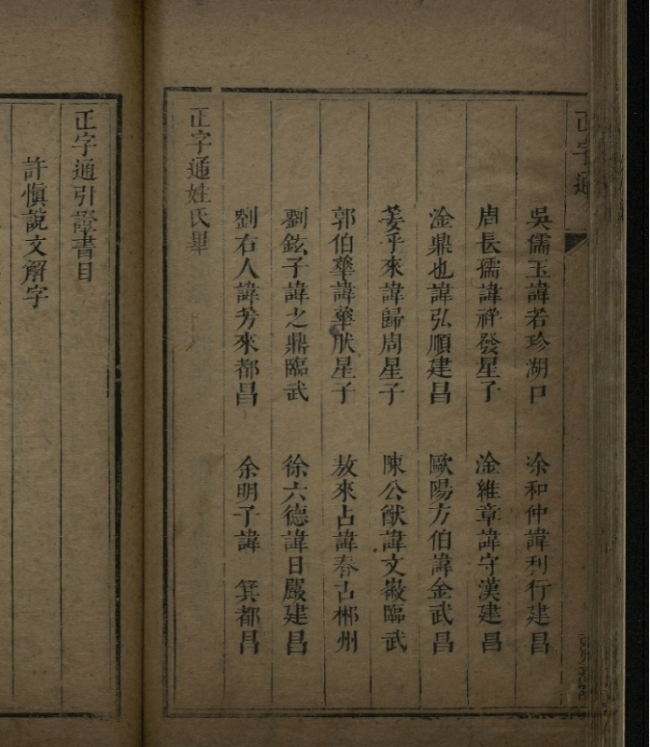 正字通
吳儒玉諱若珍湖口　涂和仲諱利行建昌
周長孺諱祥發星子　淦維章諱守漢建昌
淦鼎也諱弘順建昌　歐陽方伯諱金武昌
姜乎來諱歸周星子　陳公猷諱文巖臨武
郭伯華諱華肰星子　敖來占諱春古郴州
劉鉉子諱之鼎臨武　徐六德諱日嚴建昌
劉右人諱芳來都昌　余明子諱　箕都昌
正字通姓氏畢
正字通引證書目
許愼說文解字